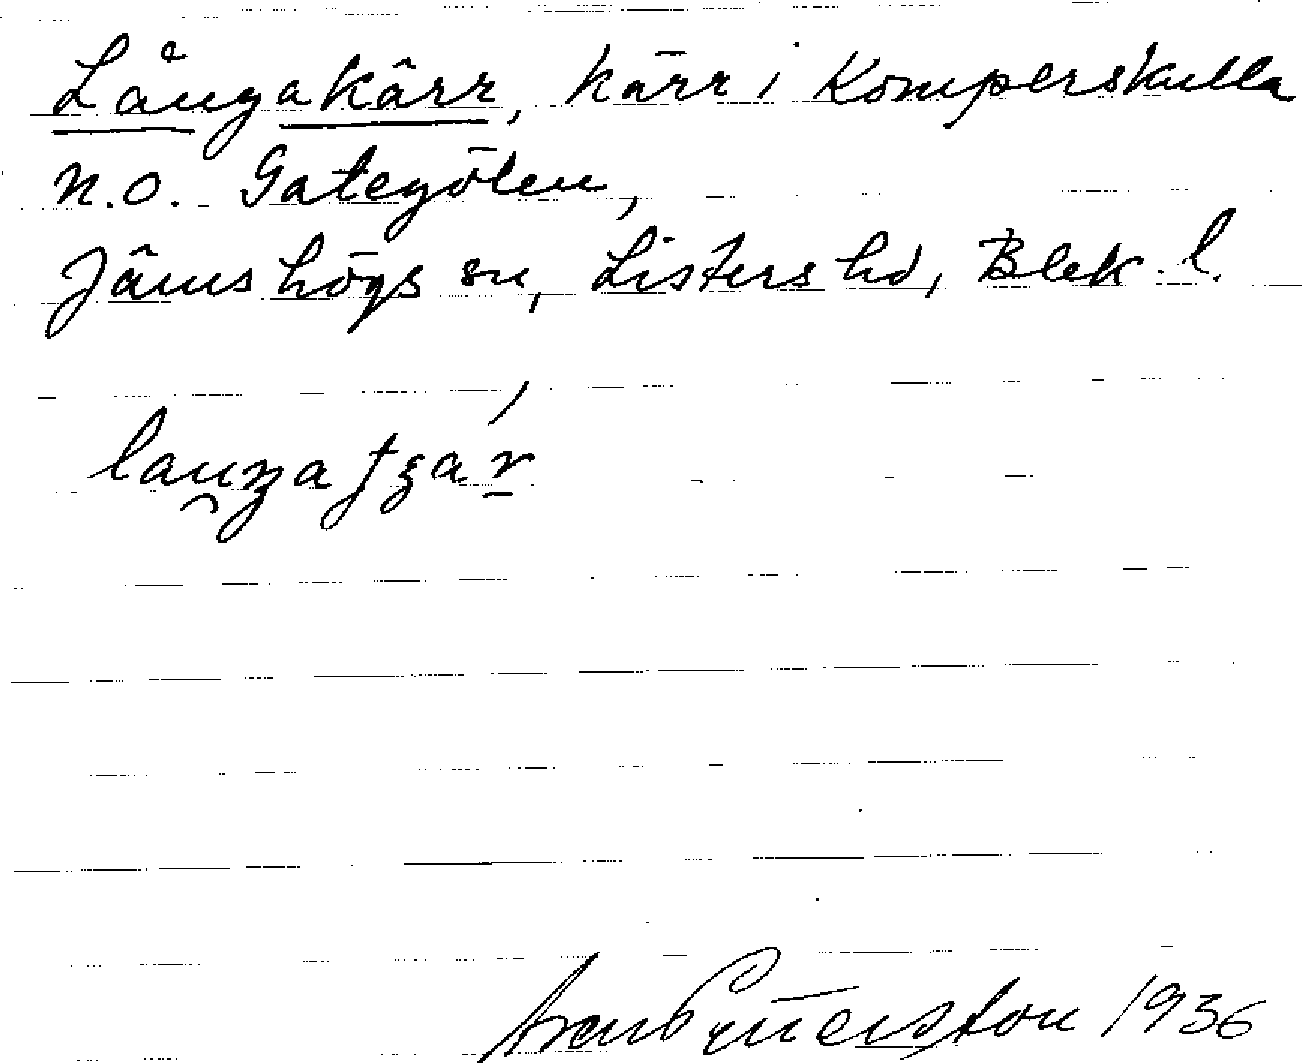 Långakärr, kärr i Komperskulla
N.O. Gategölen,
Jämshögs sn, Listers hd, Blek. l.
1936